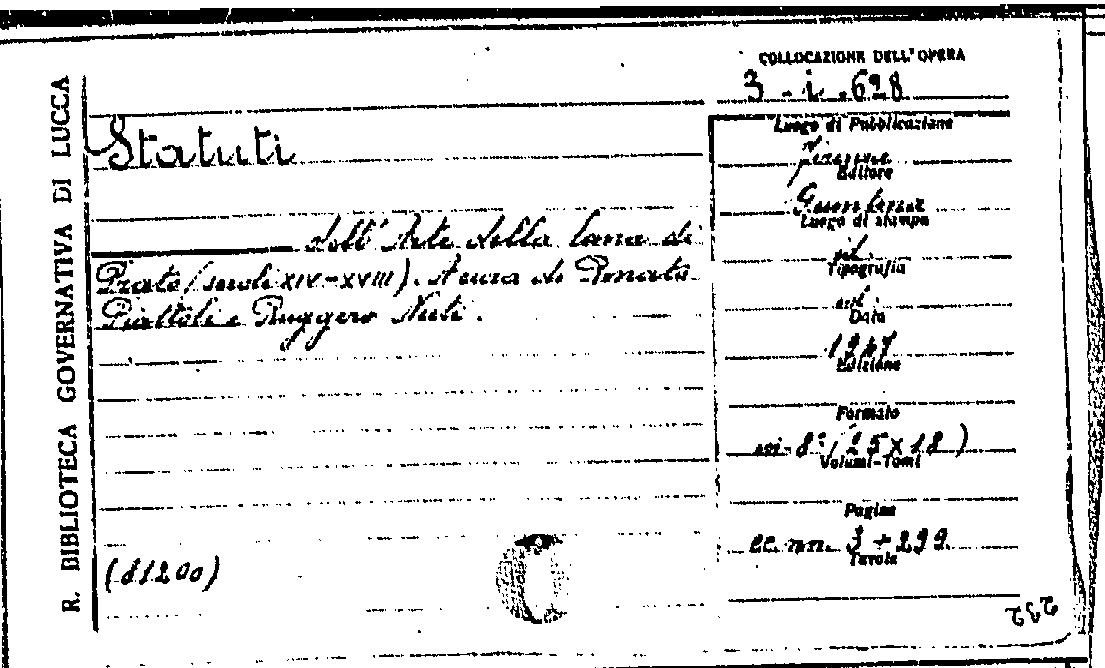 R. BIBLIOTECA GOVERNATIVA DI LUCCA
COLLOCAZIONE DELL'OPERA
3-i-628
Statuti
dell'Arte della lana di
Prato (secoli XIV-XVIII). A cura di Renato
Piattoli e Ruggero Nuti.
(81200)
Luogo di Pubblicazione
Firenze
Editore
Giuntina
Luogo di stampa
id.
Tipografia
id.
Data
1947
Edizione
Formato
in-8° (25x18)
Volumi-Tomi
Pagine
cc. nn. 3+299
Tavole
232